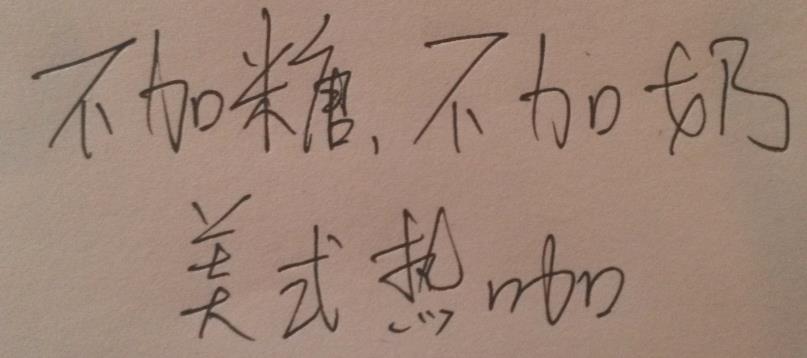 不加糖,不加奶
美式热咖